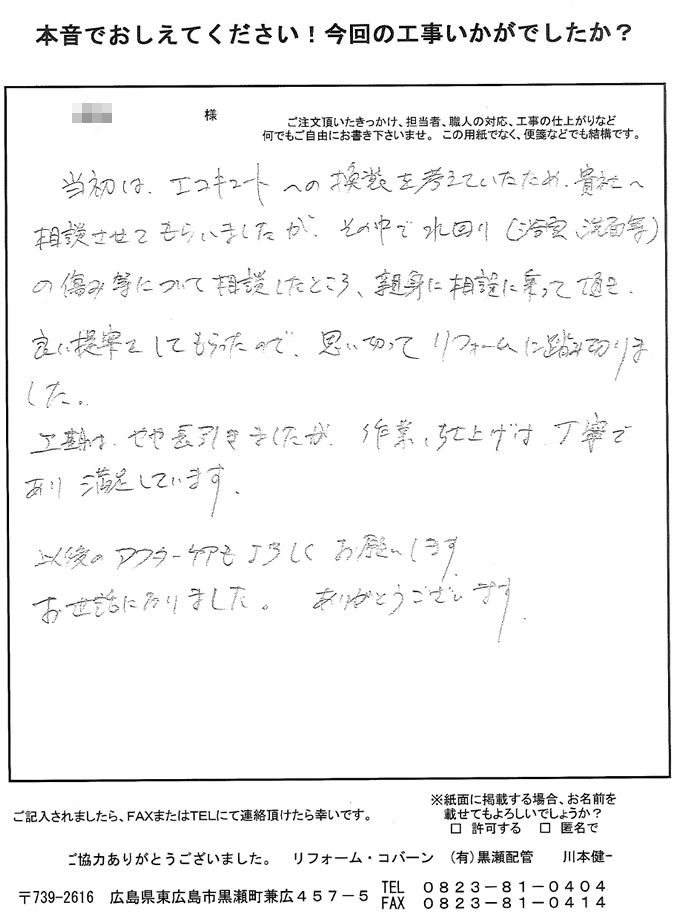 本音でおしえてください！今回の工事いかがでしたか？
様
ご注文頂いたきっかけ、担当者、職人の対応、工事の仕上がりなど
何でもご自由にお書き下さいませ。この用紙でなく、便箋などでも結構です。
当初は、エコキュートへの換装を考えていたため、貴社へ
相談させてもらいましたが、その中で水回り（浴室、洗面等）
の傷み等について相談したところ、親身に相談に乗って頂き、
良い提案をしてもらったので、思い切ってリフォームに踏み切りま
した。
工期は、やや長引きましたが、作業、仕上げは、丁寧で
あり満足しています。
以後のアフターケアもよろしくお願いします。
お世話になりました。ありがとうございます。
ご記入されましたら、FAXまたはTELにて連絡頂けたら幸いです。
※紙面に掲載する場合、お名前を
載せてもよろしいでしょうか？
□ 許可する □ 匿名で
ご協力ありがとうございました。 リフォーム・コバーン （有）黒瀬配管 川本健一
〒739-2616 広島県東広島市黒瀬町兼広４５７－５
TEL ０８２３－８１－０４０４
FAX ０８２３－８１－０４１４